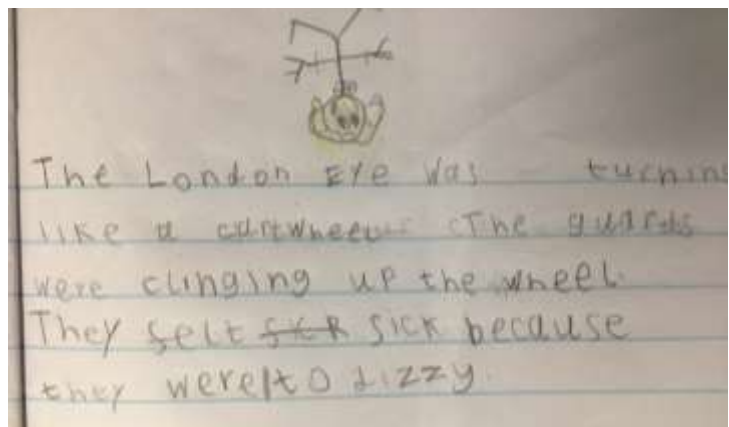 The London Eye was turning
like a cartwheel. The guards
were clinging up the wheel.
They felt sick because
they were to dizzy.